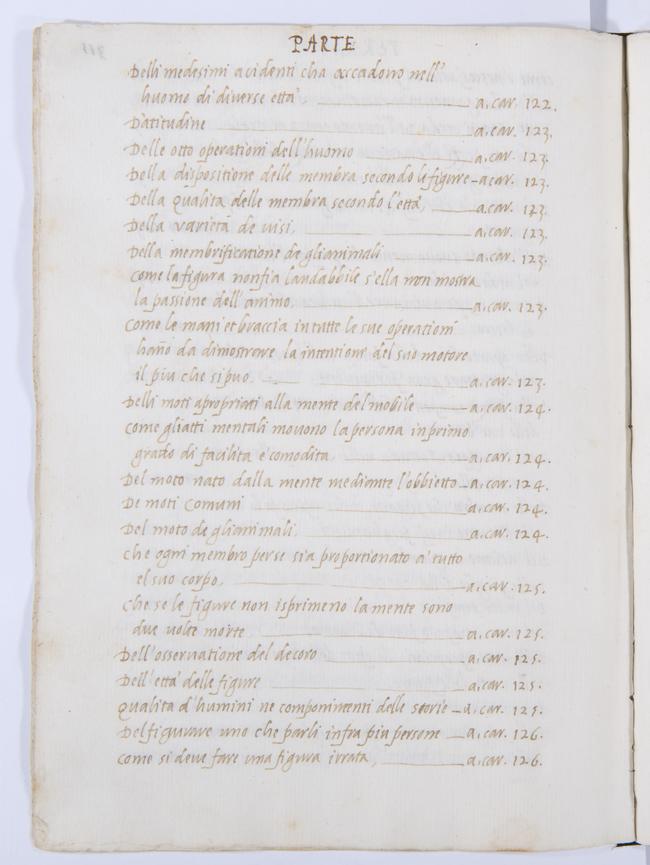 PARTE
Delli medesimi acidenti cha accadono nell'
huomo di diverse etta' a. car. 122.
D'atitudine a. car. 123.
Delle otto operationi dell'huomo a. car. 123.
Della dispositione delle membra secondo le figure a car. 123.
Della qualità delle membra secondo l'età, a. car. 123.
Della varietà de visi, a. car. 123.
Della membrificatione de gli animali a. car. 123.
Come la figura non fia laudabbile s'ella non mostra
la passione dell'animo. a. car. 123.
Come le mani et braccia in tutte le sue operationi
hano da dimostrare la intentione del suo motore
il piu che si puo. a. car. 123.
Delli moti apropriati alla mente del mobile a. car. 124.
Come gli atti mentali movono la persona in primo
grado di facilità e comodita a. car. 124.
Del moto nato dalla mente mediante l'obbietto a. car. 124.
De moti Comuni a. car. 124.
Del moto de gli animali, a. car. 124.
Che ogni membro per se sia proportionato a' tutto
el suo corpo, a. car. 125.
Che se le figure non isprimeno la mente sono
due volte morte a. car. 125.
Dell'osservatione del decoro a. car. 125.
Dell'età delle figure a. car. 125.
Qualita d'humini ne componimenti delle storie a. car. 125.
Del figurare uno che parli infra piu persone a. car. 126.
Come si deve fare una figura irrata, a. car. 126.